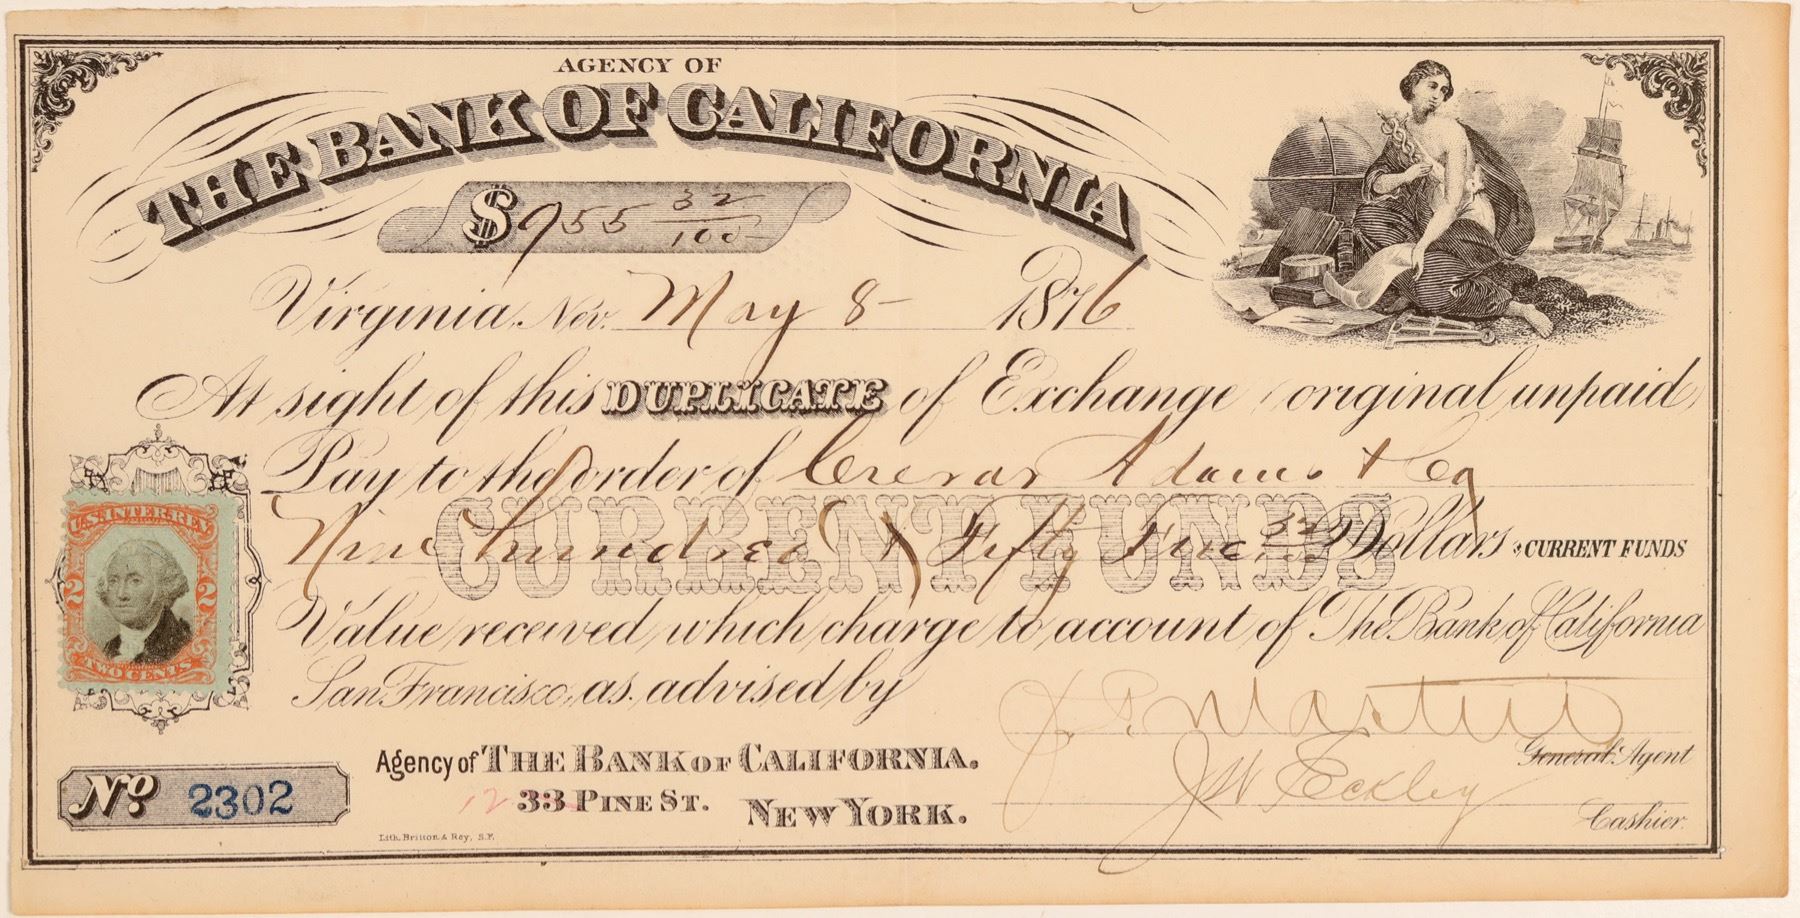 AGENCY OF
THE BANK OF CALIFORNIA
$955 32/100
Virginia, Nev. May 8 - 1876
At sight of this DUPLICATE of Exchange (original unpaid)
Pay to the order of Crerar Adams & Co
Nine hundred & Fifty Five 32/100 Dollars CURRENT FUNDS
CURRENT FUNDS
Value received which charge to account of The Bank of California
San Francisco, as advised by
J. P. Martin
General Agent
J W Eckley
Cashier.
U.S. INTER. REV.
2 2
TWO CENTS
No 2302
Agency of THE BANK OF CALIFORNIA.
12 33 PINE ST. NEW YORK.
Lith. Britton & Rey, S.F.